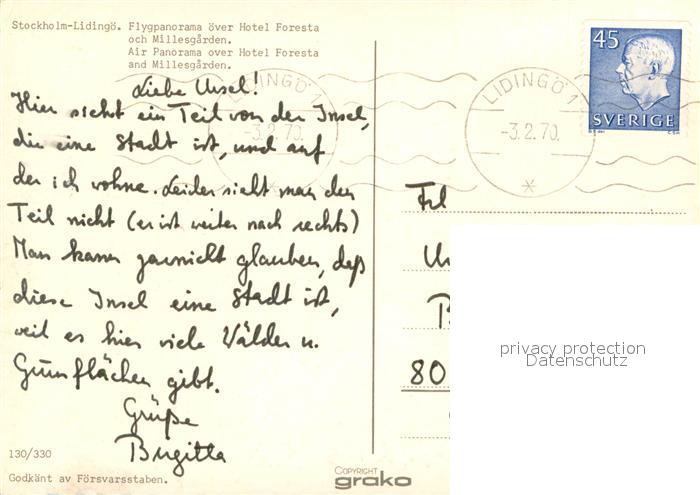 Stockholm-Lidingö. Flygpanorama över Hotel Foresta
och Millesgården.
Air Panorama over Hotel Foresta
and Millesgården.
Liebe Ursel!
Hier sieht ein Teil von der Insel,
die eine Stadt ist, und auf
der ich wohne. Leider sieht man den
Teil nicht (er ist weiter nach rechts)
Man kann garnicht glauben, daß
diese Insel eine Stadt ist,
weil es hier viele Wälder u.
Grünflächen gibt.
Grüße
Birgitta
130/330
Godkänt av Försvarsstaben.
COPYRIGHT
grako
LIDINGÖ 1
-3.2.70.
LIDINGÖ 1
-3.2.70.
45
SVERIGE
Frl
80
privacy protection
Datenschutz